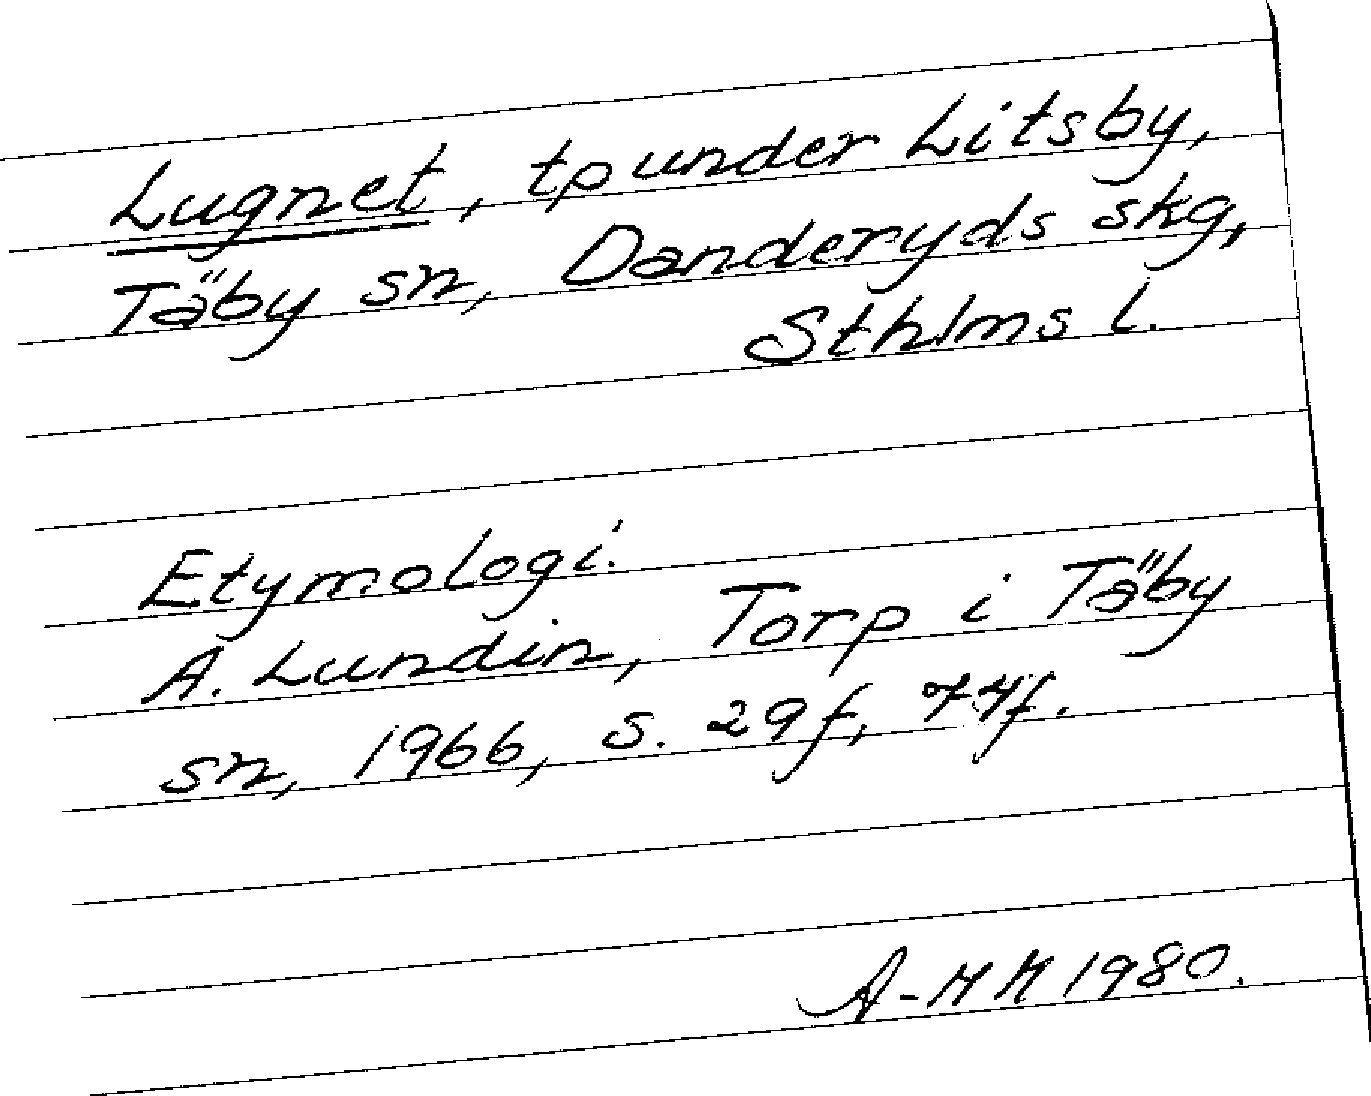 Lugnet, tp under Litsby,
Täby sn, Danderyds skg,
Sthlms l.
Etymologi.
A. Lundin, Torp i Täby
sn, 1966, s. 29f, 74f.
A-MM 1980.